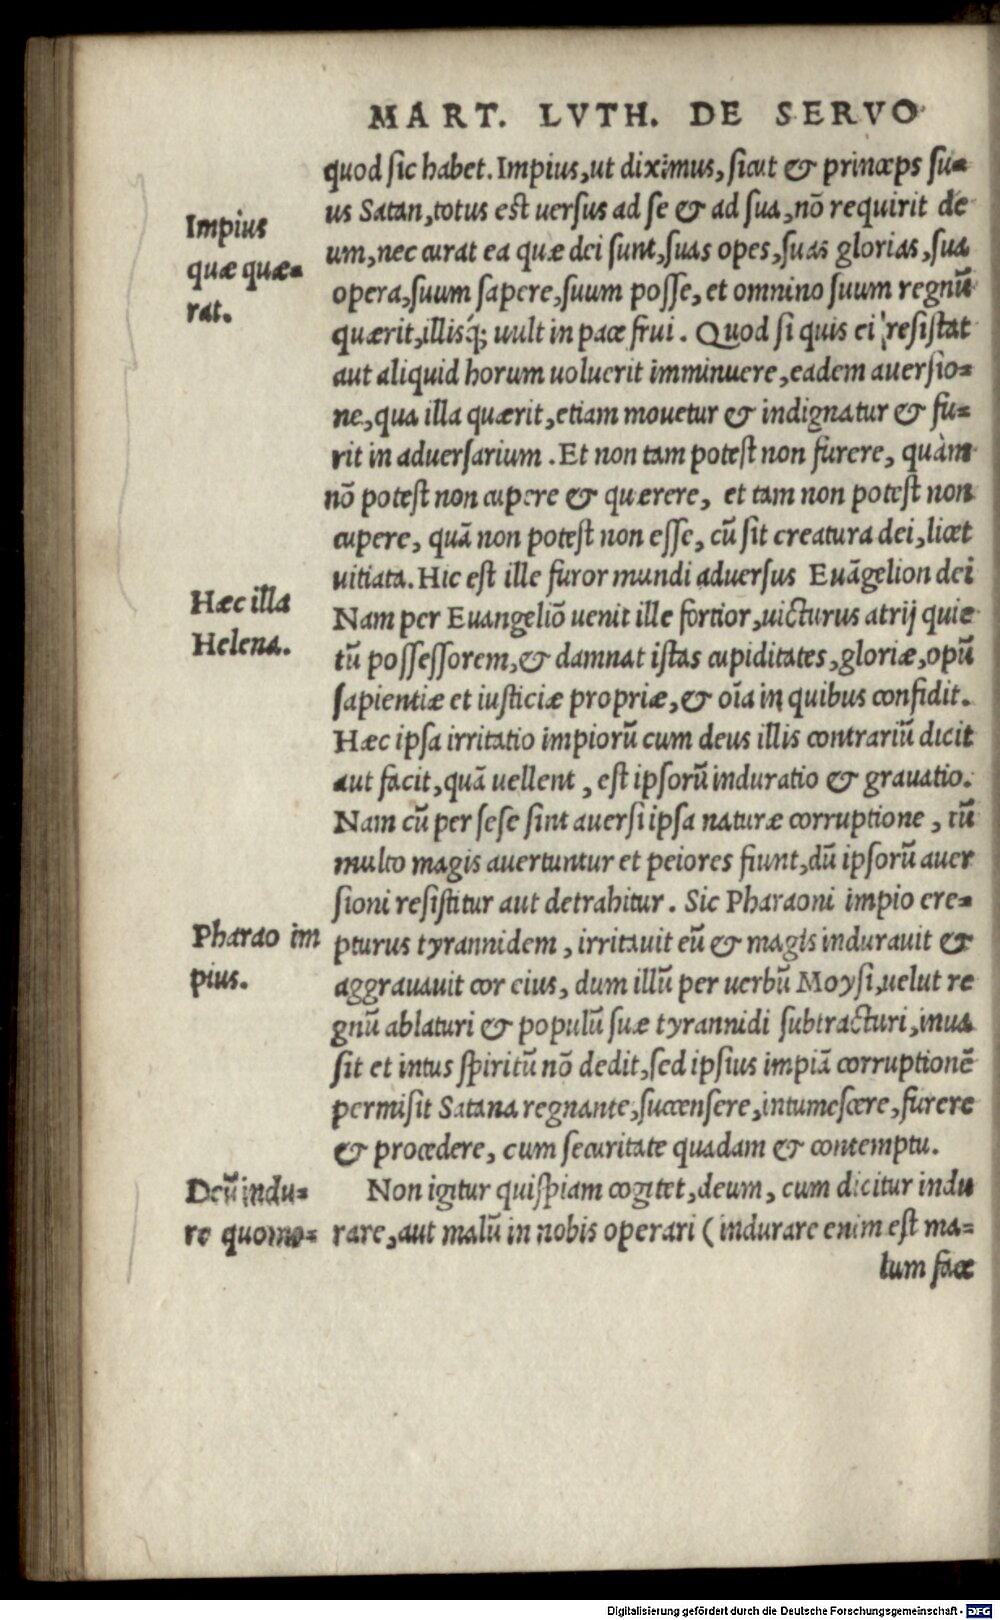 MART. LVTH. DE SERVO
quod sic habet. Impius, ut diximus, sicut & princeps su=
us Satan, totus est uersus ad se & ad sua, nō requirit de
um, nec curat ea quæ dei sunt, suas opes, suas glorias, sua
opera, suum sapere, suum posse, et omnino suum regnū
quærit, illisq́; uult in pace frui. Quod si quis ei resistat
aut aliquid horum uoluerit imminuere, eadem auersio=
ne, qua illa quærit, etiam mouetur & indignatur & fu=
rit in aduersarium. Et non tam potest non furere, quàm
nō potest non cupere & quærere, et tam non potest non
cupere, quā non potest non esse, cū sit creatura dei, licet
uitiata. Hic est ille furor mundi aduersus Euāgelion dei
Nam per Euangeliō uenit ille fortior, uicturus atrij quie
tū possessorem, & damnat istas cupiditates, gloriæ, opū
sapientiæ et iusticiæ propriæ, & oīa in quibus confidit.
Hæc ipsa irritatio impiorū cum deus illis contrariū dicit
aut facit, quā uellent, est ipsorū induratio & grauatio.
Nam cū per sese sint auersi ipsa naturæ corruptione, tū
multo magis auertuntur et peiores fiunt, dū ipsorū auer
sioni resistitur aut detrahitur. Sic Pharaoni impio ere=
pturus tyrannidem, irritauit eū & magis indurauit &
aggrauauit cor eius, dum illū per uerbū Moysi, uelut re
gnū ablaturi & populū suæ tyrannidi subtracturi, inua
sit et intus spiritū nō dedit, sed ipsius impiā corruptionē
permisit Satana regnante, succensere, intumescere, furere
& procedere, cum securitate quadam & contemptu.
Non igitur quispiam cogitet, deum, cum dicitur indu
rare, aut malū in nobis operari (indurare enim est ma=
lum face
Impius
quæ quæ=
rat.
Hæc illa
Helena.
Pharao im
pius.
Deū indu=
re quomo=
Digitalisierung gefördert durch die Deutsche Forschungsgemeinschaft - DFG